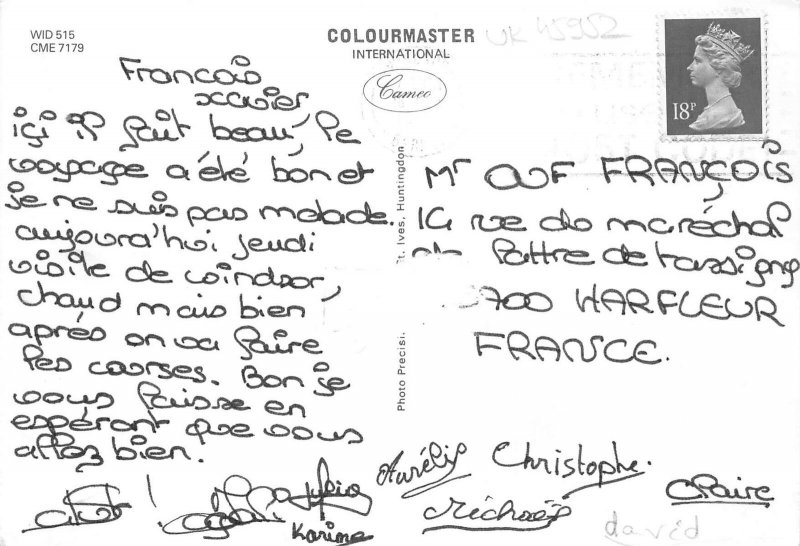 WID 515
CME 7179
COLOURMASTER
INTERNATIONAL
Cameo
UK 45952
18P
Francois
xavier
içi il fait beau, le
voyage a été bon et
je ne suis pas malade.
aujourd'hui jeudi
visite de windsor,
chaud mais bien
après on va faire
les courses. Bon je
vous laisse en
espérant que vous
allez bien.
Karine
Photo Precisi
St. Ives, Huntingdon
Mr OUF FRANÇOIS
14 rue do maréchal
de lattre de tassigny
700 HARFLEUR
FRANCE.
Aurélie
Christophe.
Michaël
Claire
david